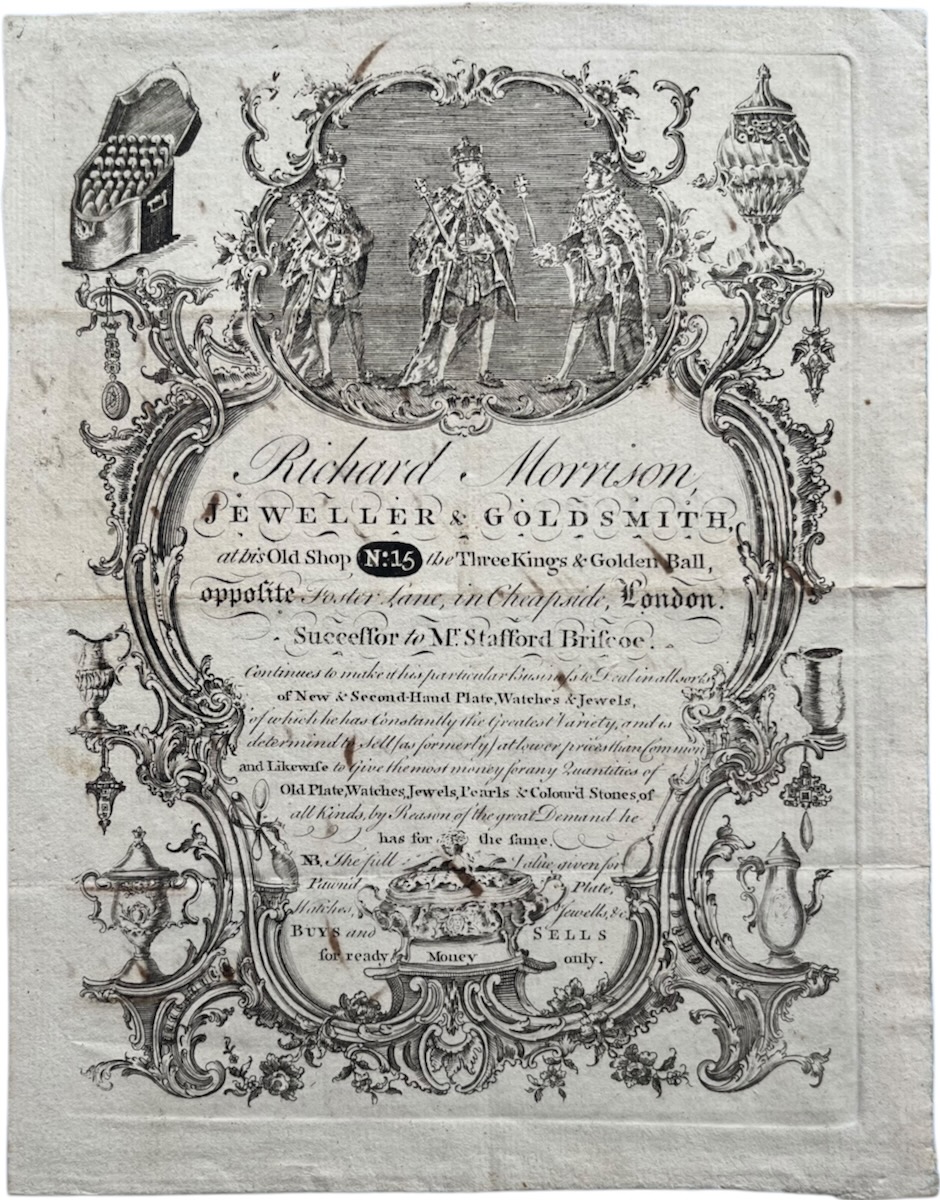 Richard Morrison,
JEWELLER & GOLDSMITH,
at his Old Shop N:15 the Three Kings & Golden Ball,
opposite Foster Lane, in Cheapside, London.
Succeſsor to Mr. Stafford Briscoe.
Continues to make it his particular Business to Deal in all sorts
of New & Second-Hand Plate, Watches & Jewels,
of which he has Constantly the Greatest Variety, and is
determind to Sell (as formerly) at lower prices than Common
and Likewise to Give the most money for any Quantities of
Old Plate, Watches, Jewels, Pearls & Colour'd Stones, of
all Kinds, by Reason of the great Demand he
has for the same.
NB. The full Value given for
Pawnd Plate,
Watches, Jewells, &c.
BUYS and SELLS
for ready Money only.